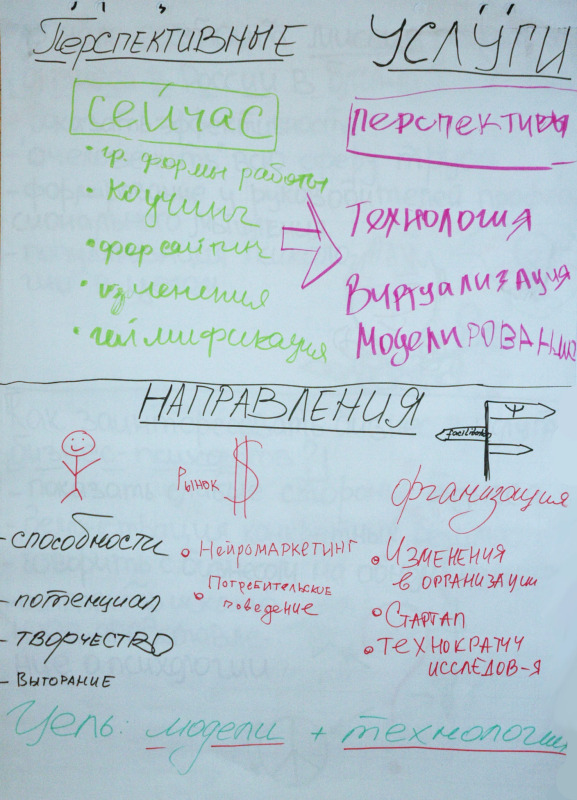 Перспективные услуги
сейчас
• гр. формы работы
• коучинг
• форсайтинг
• изменения
• геймификация
перспективы
Технология
Виртуализация
Моделирование
НАПРАВЛЕНИЯ
- способности
- потенциал
- ТВОРЧЕСТВО
- Выгорание
Рынок $
Нейромаркетинг
Потребительское
поведение
Ψ
facilitator
организация
Изменения
в организации
Стартап
Технократич
исследов-я
Цель: модели + технологии